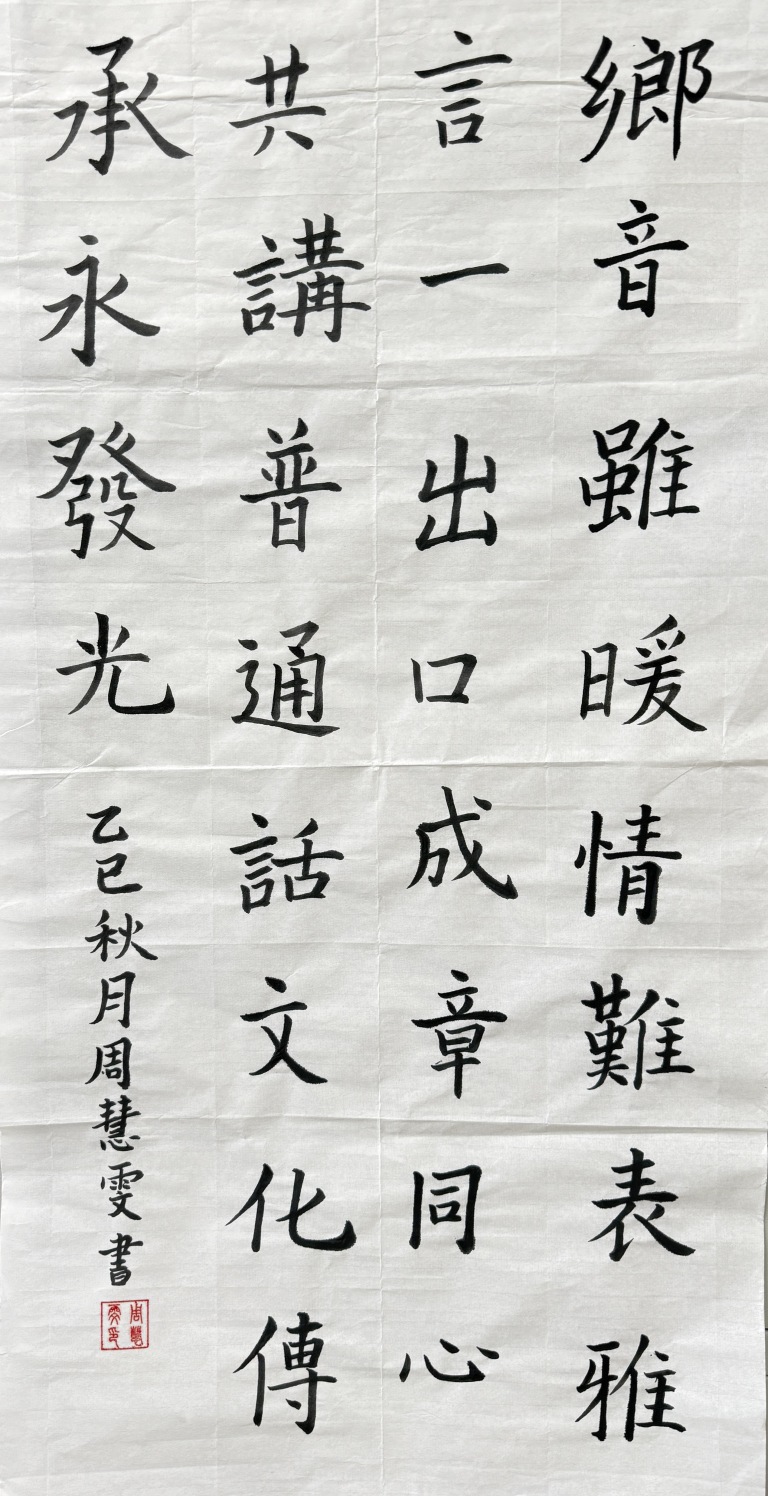 鄉音雖暖情難表雅
言一出口成章同心
共講普通話文化傳
承永發光
乙巳秋月周慧雯書
周慧雯印